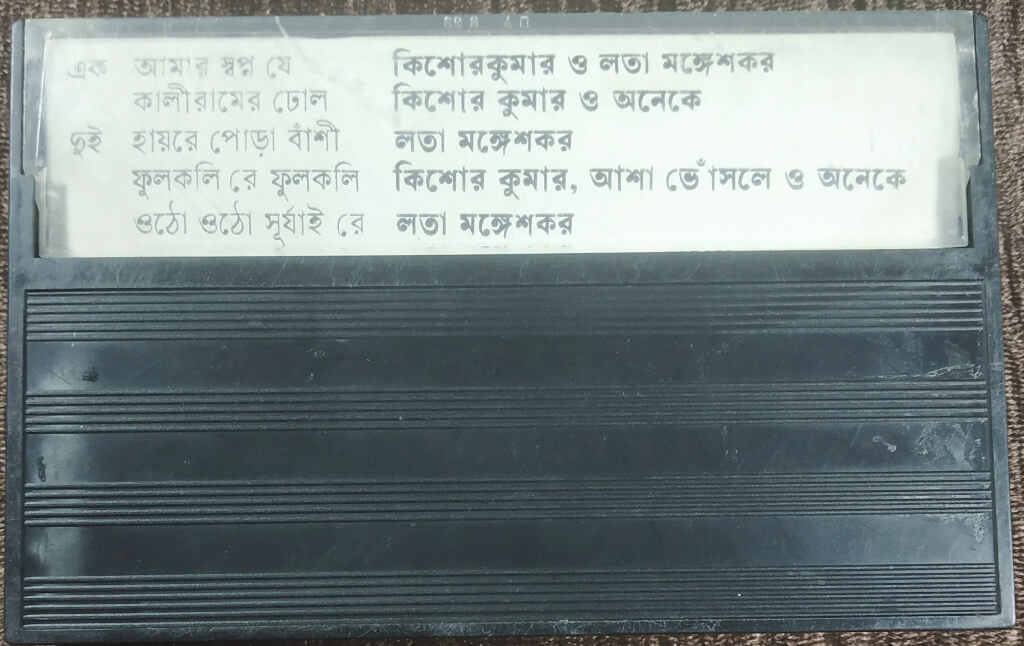 এক আমার স্বপ্ন যে কিশোরকুমার ও লতা মঙ্গেশকর
কালীরামের ঢোল কিশোর কুমার ও অনেকে
দুই হায়রে পোড়া বাঁশী লতা মঙ্গেশকর
ফুলকলি রে ফুলকলি কিশোর কুমার, আশা ভোঁসলে ও অনেকে
ওঠো ওঠো সূর্যাই রে লতা মঙ্গেশকর